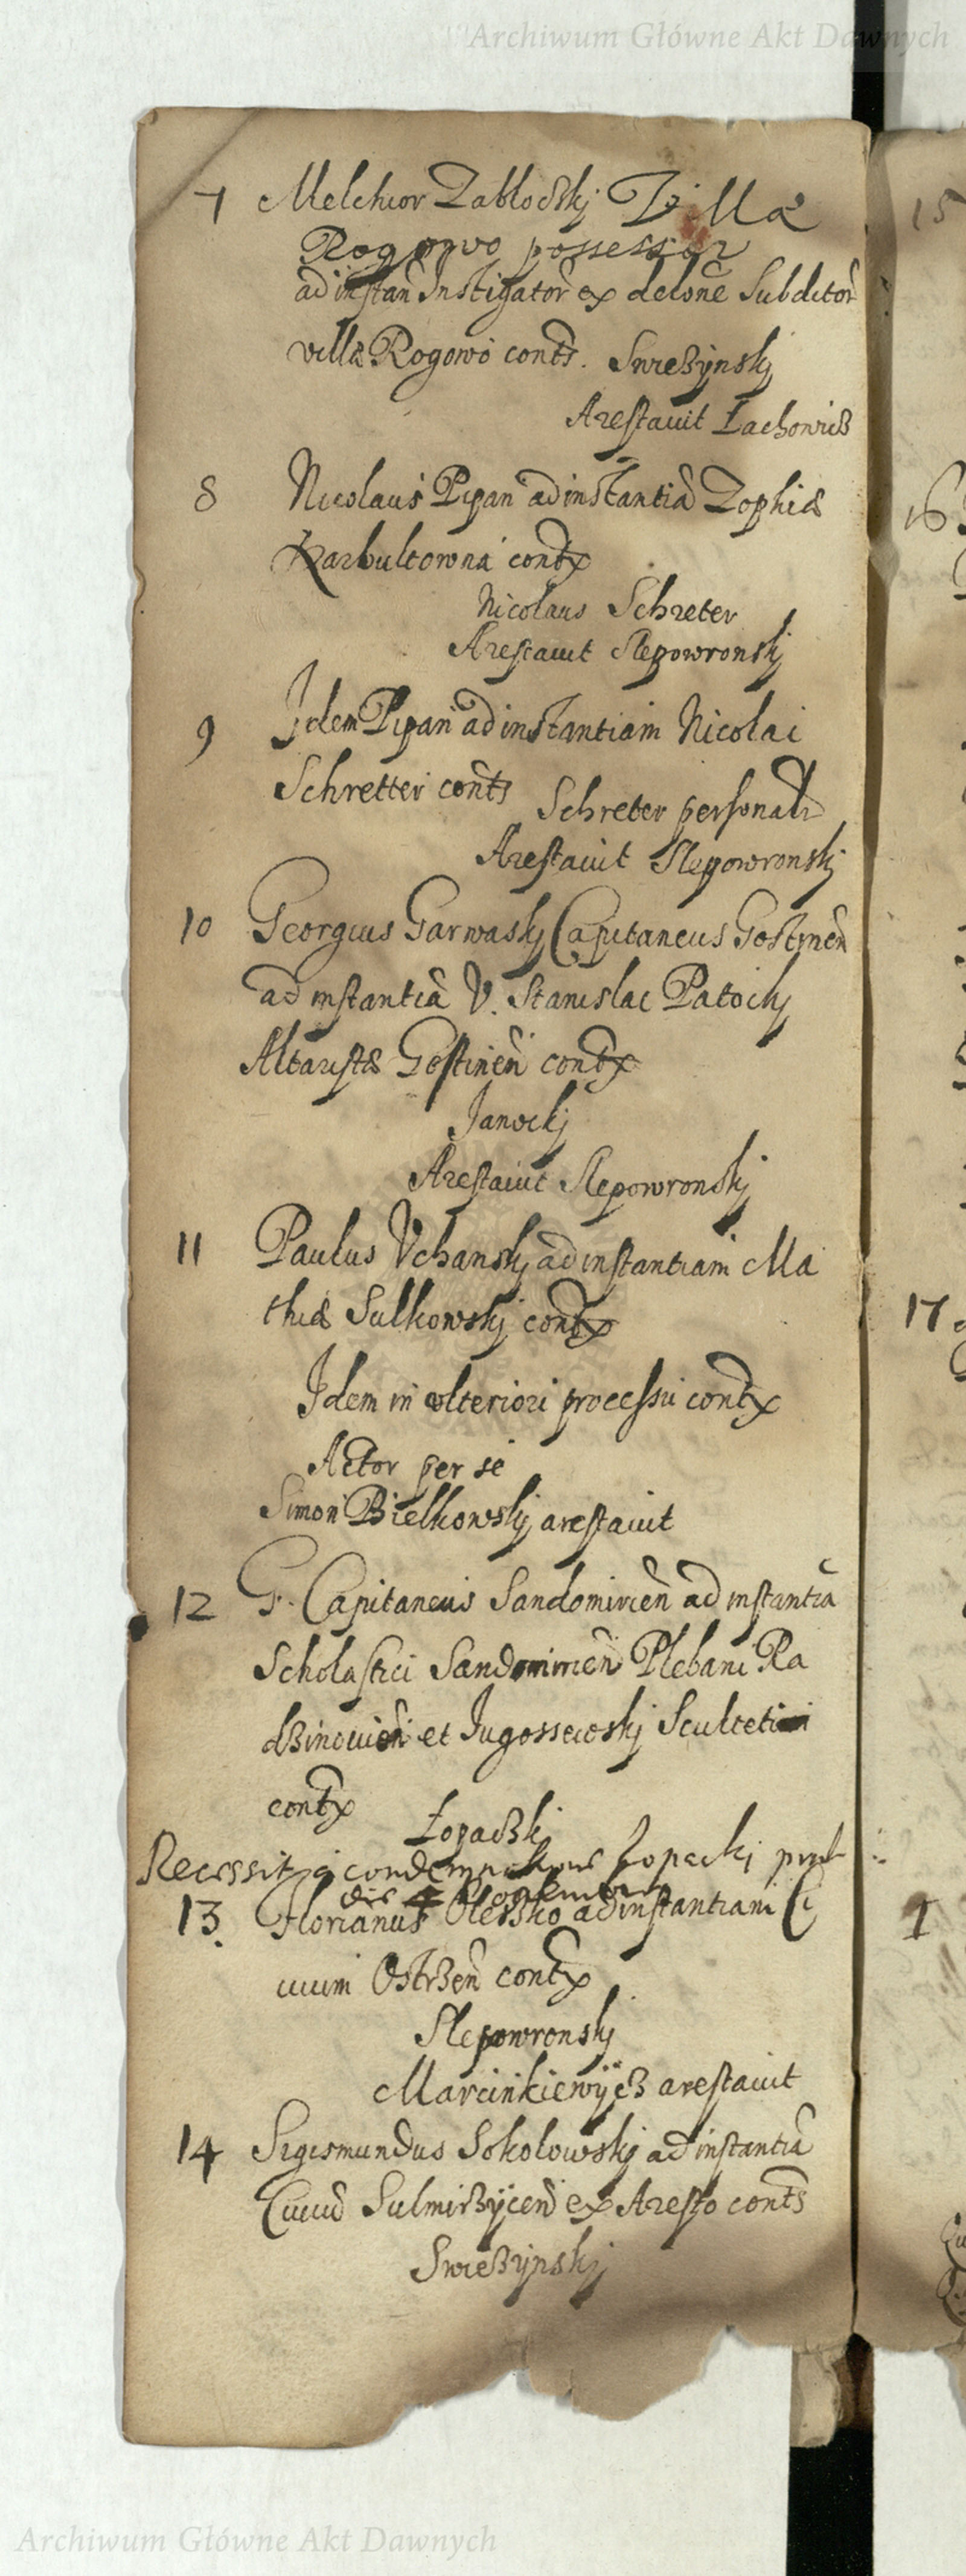 Archiwum Główne Akt Dawnych
7 Melchior Zablockj Villæ
Rogowo possessor
ad instan Instigator ex delone Subditor
villæ Rogowo contx. Swieżynskj
Arestauit Zachowicz
8 Nicolaus Pipan ad instantiā Zophiæ
Karbultowna contx
Nicolaus Schreter
Arestauit Slepowronskj
9 Idem Pipan ad instantiam Nicolai
Schretter contx Schreter personalr
Arestauit Slepowronskj
10 Georgius Garwaskj Capitaneus Gostinen
ad instantiā V. Stanislai Patockj
Altaristæ Gostinen contx
Janockj
Arestauit Slepowronskj
11 Paulus Vchanskj ad instantiam Ma
thiæ Sulkowskj contx
Idem in vlteriori processu contx
Actor per se
Simon Bielkowskj arestauit
12 G. Capitaneus Sandomirien ad instantiā
Scholastici Sandomirien Plebani Ra
dzinouien et Jugossewskj Sculteti
contx
Łopaczkj
Recessit a condempnatione Łopackj
die 4
13. Florianus Olessko ad instantiam Ci
uium Ostrzen contx
Slepowronskj
Marcinkiewÿcz arestauit
14 Sigismundus Sokolowskj ad instantiā
Ciuiū Sulmirzÿcen ex Aresto contx
Swiezÿnskj
15
16
17
1
Archiwum Główne Akt Dawnych